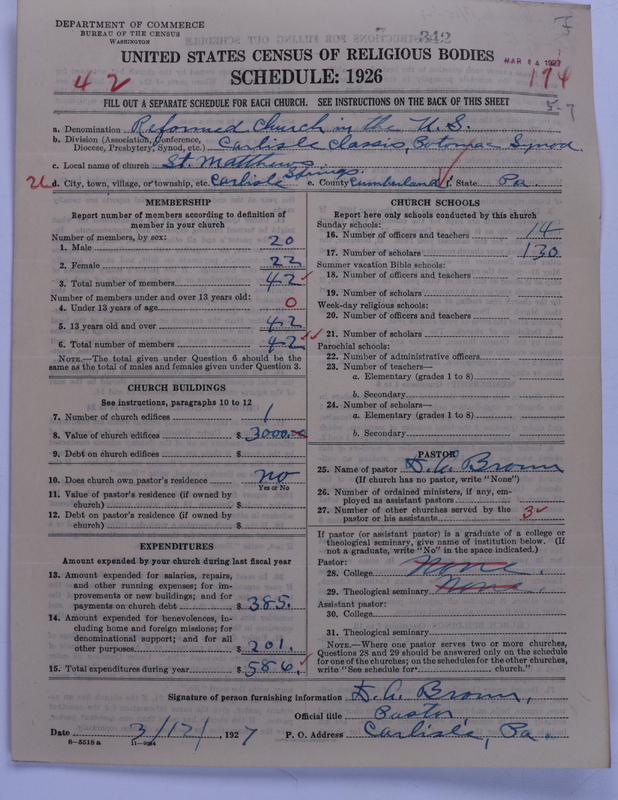 DEPARTMENT OF COMMERCE
BUREAU OF THE CENSUS
WASHINGTON
342
UNITED STATES CENSUS OF RELIGIOUS BODIES
MAR 24 1927
SCHEDULE: 1926
42
174
FILL OUT A SEPARATE SCHEDULE FOR EACH CHURCH. SEE INSTRUCTIONS ON THE BACK OF THIS SHEET
5-7
a. Denomination Reformed Church in the U.S.
b. Division (Association, Conference, Diocese, Presbytery, Synod, etc.) Carlisle Classis, Potomac Synod.
c. Local name of church St. Matthews.
d. City, town, village, or township, etc. Carlisle Springs. e. County Cumberland f. State Pa.
MEMBERSHIP
Report number of members according to definition of
member in your church
Number of members, by sex:
1. Male 20
2. Female 22
3. Total number of members 42
Number of members under and over 13 years old:
4. Under 13 years of age 0
5. 13 years old and over 42
6. Total number of members 42
NOTE.—The total given under Question 6 should be the
same as the total of males and females given under Question 3.
CHURCH BUILDINGS
See instructions, paragraphs 10 to 12
7. Number of church edifices 1
8. Value of church edifices $ 3000.
9. Debt on church edifices $
10. Does church own pastor's residence no
Yes or No
11. Value of pastor's residence (if owned by
church) $
12. Debt on pastor's residence (if owned by
church) $
EXPENDITURES
Amount expended by your church during last fiscal year
13. Amount expended for salaries, repairs,
and other running expenses; for im-
provements or new buildings; and for
payments on church debt $ 385.
14. Amount expended for benevolences, in-
cluding home and foreign missions; for
denominational support; and for all
other purposes $ 201.
15. Total expenditures during year $ 586.
CHURCH SCHOOLS
Report here only schools conducted by this church
Sunday schools:
16. Number of officers and teachers 14
17. Number of scholars 130
Summer vacation Bible schools:
18. Number of officers and teachers
19. Number of scholars
Week-day religious schools:
20. Number of officers and teachers
21. Number of scholars
Parochial schools:
22. Number of administrative officers
23. Number of teachers—
a. Elementary (grades 1 to 8)
b. Secondary
24. Number of scholars—
a. Elementary (grades 1 to 8)
b. Secondary
PASTOR
25. Name of pastor D. A. Brown
(If church has no pastor, write "None")
26. Number of ordained ministers, if any, em-
ployed as assistant pastors
27. Number of other churches served by the
pastor or his assistants 3
If pastor (or assistant pastor) is a graduate of a college or
theological seminary, give name of institution below. (If
not a graduate, write "No" in the space indicated.)
Pastor:
28. College None.
29. Theological seminary None.
Assistant pastor:
30. College
31. Theological seminary
NOTE.—Where one pastor serves two or more churches,
Questions 28 and 29 should be answered only on the schedule
for one of the churches; on the schedules for the other churches,
write "See schedule for church."
Signature of person furnishing information D. A. Brown,
Official title Pastor,
Date 3/12/, 1927 P. O. Address Carlisle, Pa.
8-5518 a